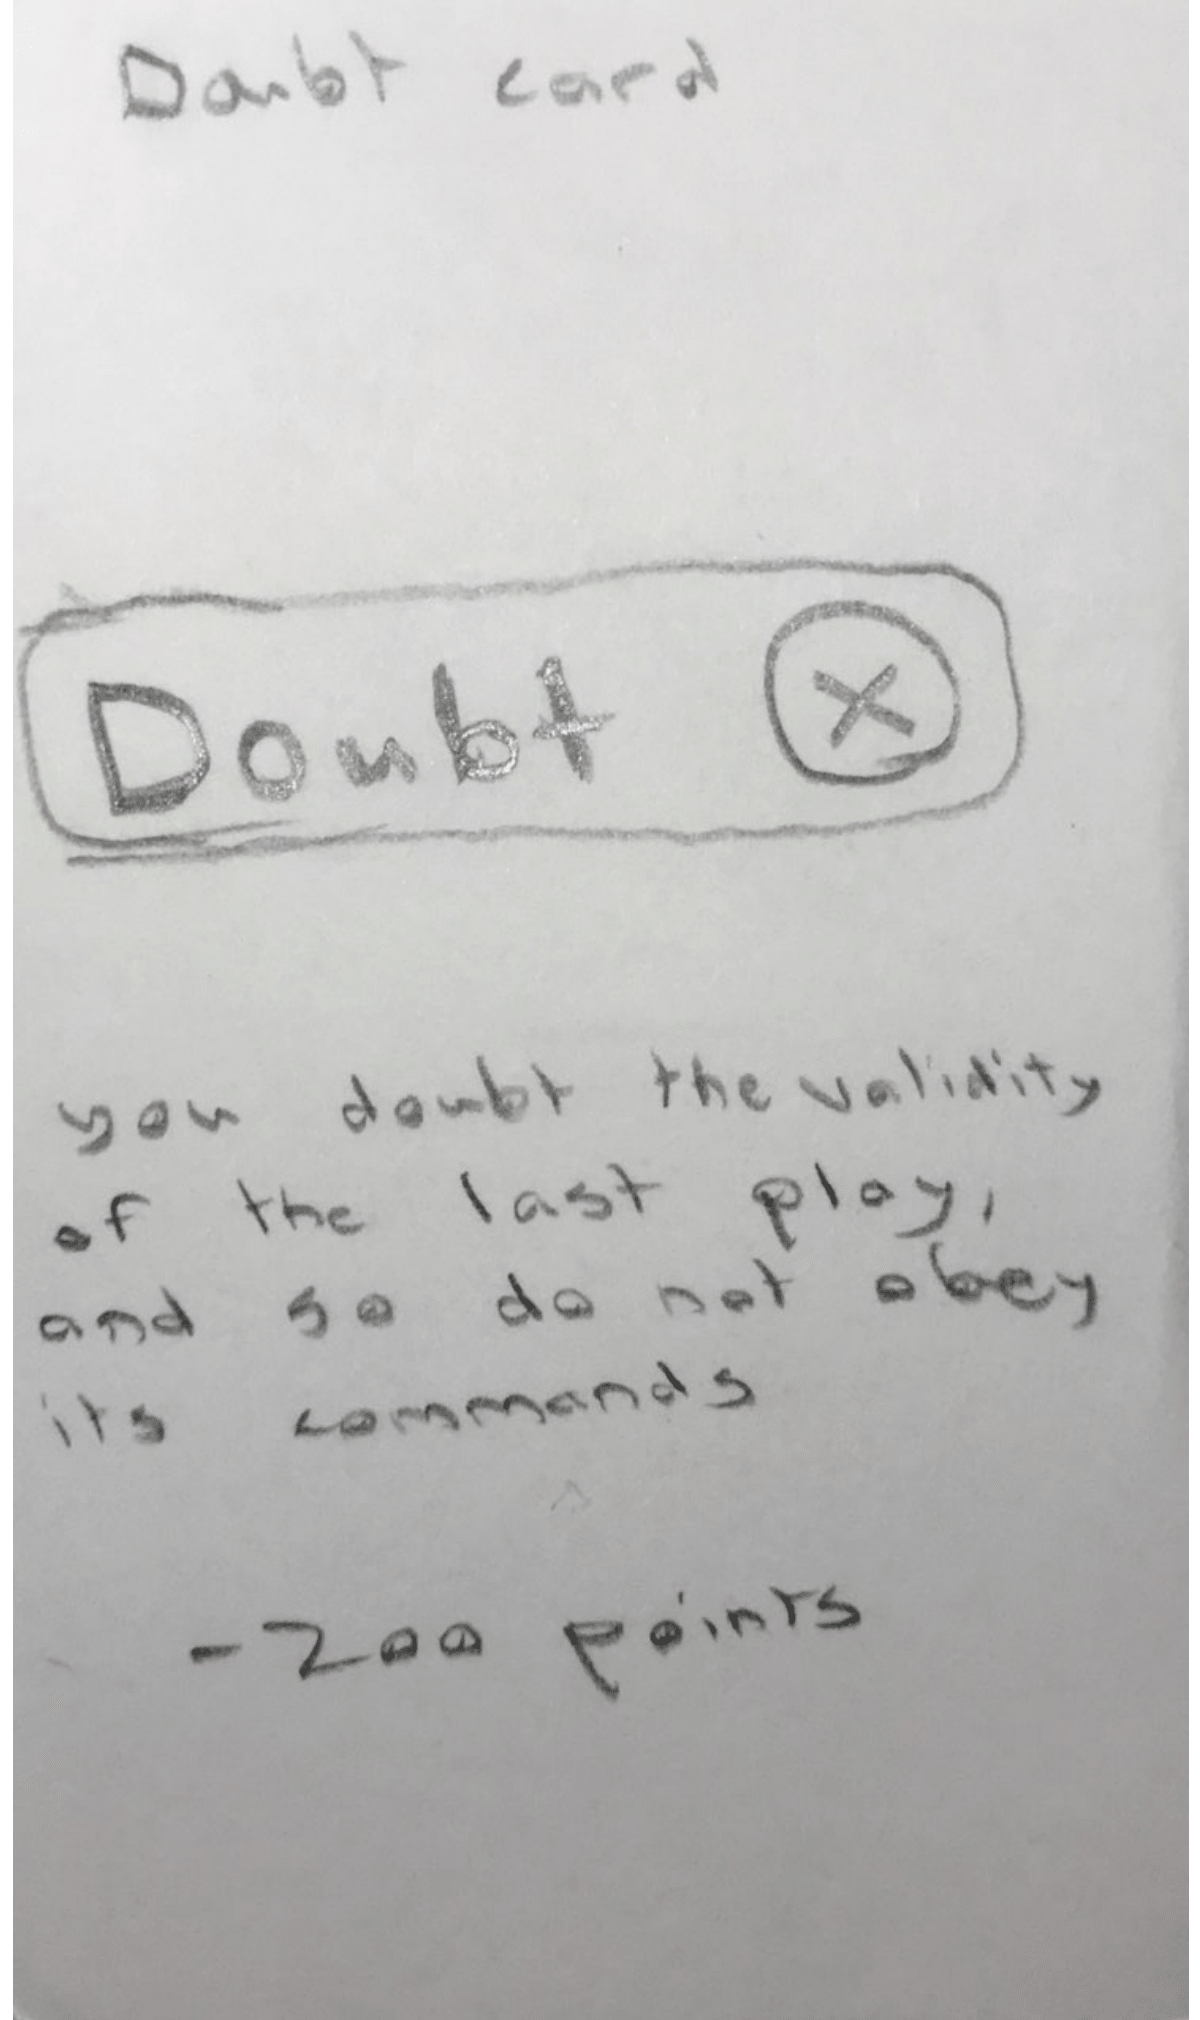 Doubt card
Doubt X
you doubt the validity
of the last play,
and so do not obey
its commands
-200 points